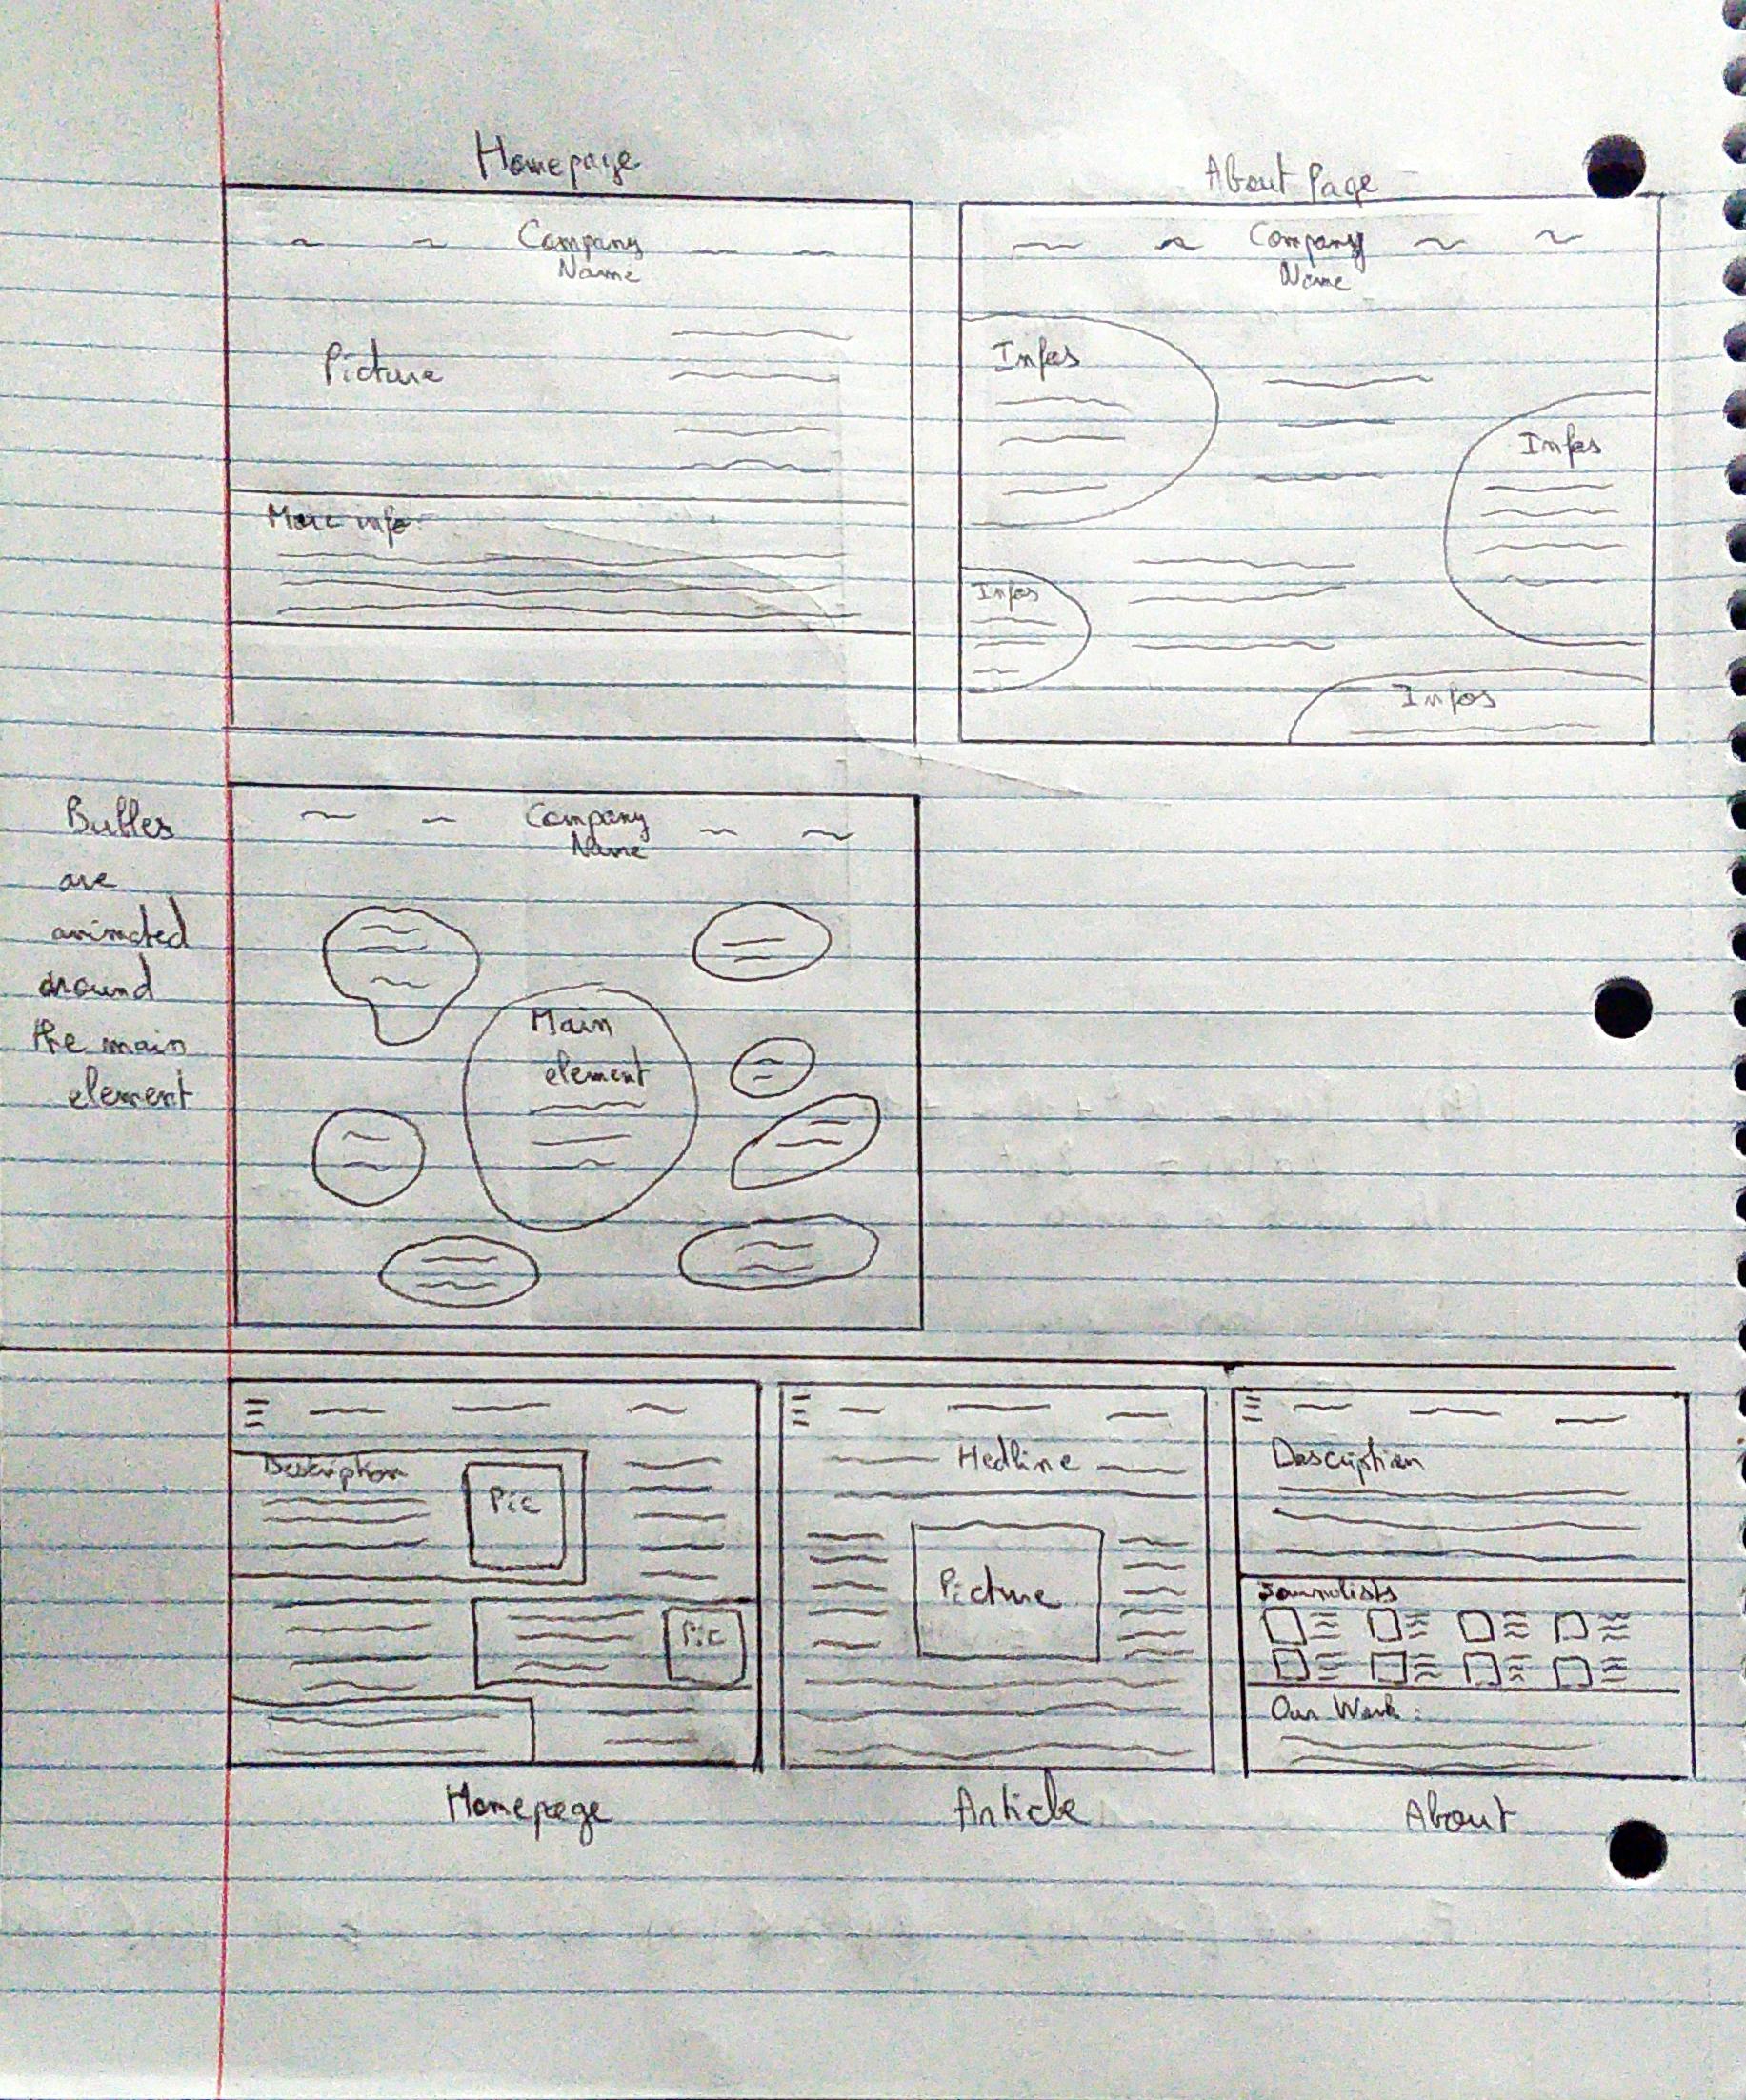 Homepage
Company
Name
Picture
More info:
About Page
Company
Name
Infos
Infos
Infos
Infos
Bubbles
are
animated
around
the main
element
Company
Name
Main
element
Description
Pic
Pic
Homepage
Hedline
Picture
Article
Description
Journalists
Our Work :
About